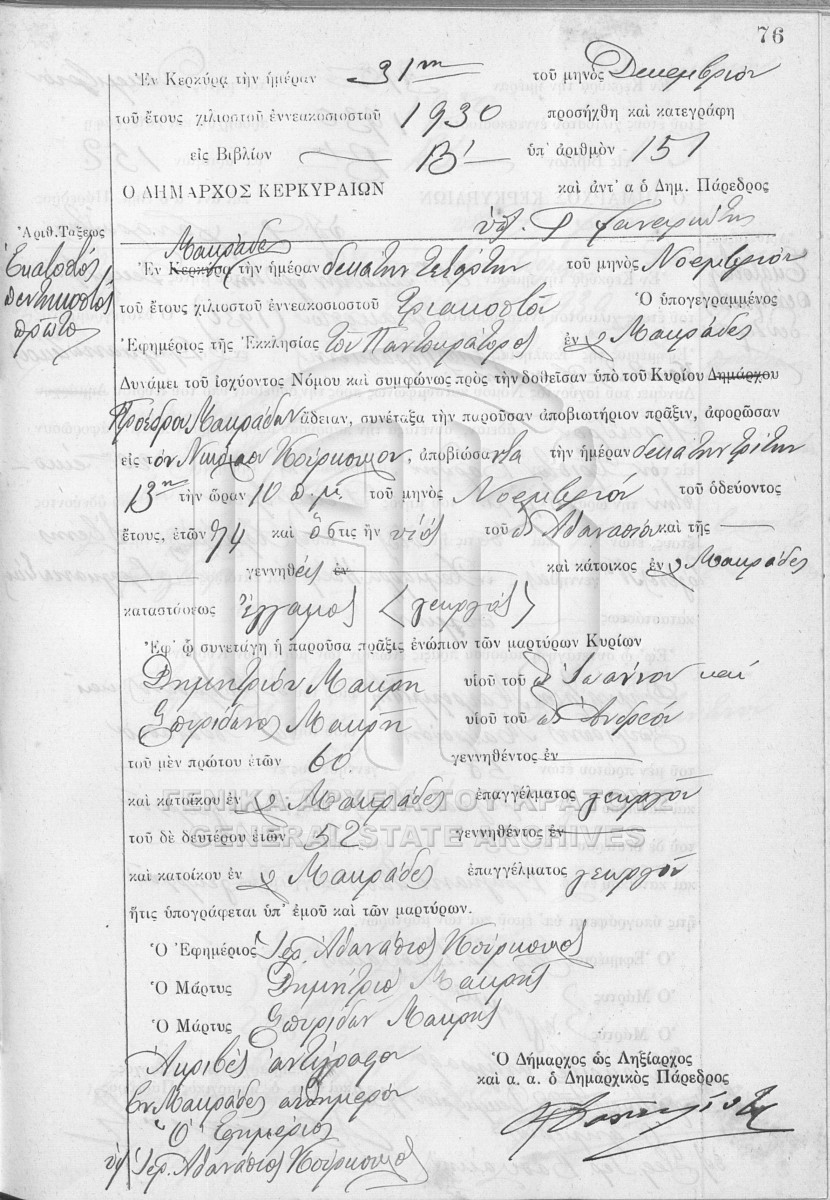 76
Ἐν Κερκύρᾳ τὴν ἡμέραν 31ην τοῦ μηνὸς Δεκεμβρίου
τοῦ ἔτους χιλιοστοῦ ἐννεακοσιοστοῦ 1930 προσήχθη καὶ κατεγράφη
εἰς Βιβλίον Β' ὑπ' ἀριθμὸν 151
Ο ΔΗΜΑΡΧΟΣ ΚΕΡΚΥΡΑΙΩΝ καὶ ἀντ' α ὁ Δημ. Πάρεδρος
ὑπ.
Ἀριθ. Τάξεως
Ἑκατοστὸς
πεντηκοστὸς
πρῶτο
Μακράδες
Ἐν Κερκύρᾳ τὴν ἡμέραν δεκάτην τετάρτην τοῦ μηνὸς Νοεμβρίου
τοῦ ἔτους χιλιοστοῦ ἐννεακοσιοστοῦ τριακοστοῦ Ὁ ὑπογεγραμμένος
Ἐφημέριος τῆς Ἐκκλησίας τοῦ Παντοκράτορος ἐν Μακράδες
Δυνάμει τοῦ ἰσχύοντος Νόμου καὶ συμφώνως πρὸς τὴν δοθεῖσαν ὑπὸ τοῦ Κυρίου Δημάρχου
Προέδρου Μακράδων ἄδειαν, συνέταξα τὴν παροῦσαν ἀποβιωτήριον πρᾶξιν, ἀφορῶσαν
εἰς τὸν Νικόλαον Κούρκουλον, ἀποβιώσαντα τὴν ἡμέραν δεκάτην τρίτην
13ην τὴν ὥραν 10 π.μ. τοῦ μηνὸς Νοεμβρίου τοῦ ὁδεύοντος
ἔτους, ἐτῶν 74 καὶ ὅστις ἦν υἱὸς τοῦ Ἀθανασίου καὶ τῆς
γεννηθεὶς ἐν καὶ κάτοικος ἐν Μακράδες
καταστάσεως Ἔγγαμος (γεωργὸς)
Ἐφ' ᾧ συνετάγη ἡ παροῦσα πρᾶξις ἐνώπιον τῶν μαρτύρων Κυρίων
Δημητρίου Μακρῆ υἱοῦ τοῦ Ἰωάννου καὶ
Σπυρίδωνος Μακρῆ υἱοῦ τοῦ Ἀνδρέου
τοῦ μὲν πρώτου ἐτῶν 60 γεννηθέντος ἐν
καὶ κατοίκου ἐν Μακράδες ἐπαγγέλματος γεωργοῦ
ΓΕΝΙΚΑ ΑΡΧΕΙΑ ΤΟΥ ΚΡΑΤΟΥΣ
GENERAL STATE ARCHIVES
τοῦ δὲ δευτέρου ἐτῶν 52 γεννηθέντος ἐν
καὶ κατοίκου ἐν Μακράδες ἐπαγγέλματος γεωργοῦ
ἥτις ὑπογράφεται ὑπ' ἐμοῦ καὶ τῶν μαρτύρων.
Ὁ Ἐφημέριος Ἱερ. Ἀθανάσιος Κούρκουλος
Ὁ Μάρτυς Δημήτριος Μακρῆς
Ὁ Μάρτυς Σπυρίδων Μακρῆς
Ἀκριβὲς ἀντίγραφον
Ἐν Μακράδες αὐθημερόν
Ὁ Ἐφημέριος
ὑπ Ἱερ. Ἀθανάσιος Κούρκουλος
Ὁ Δήμαρχος ὡς Ληξίαρχος
καὶ α. α. ὁ Δημαρχικὸς Πάρεδρος